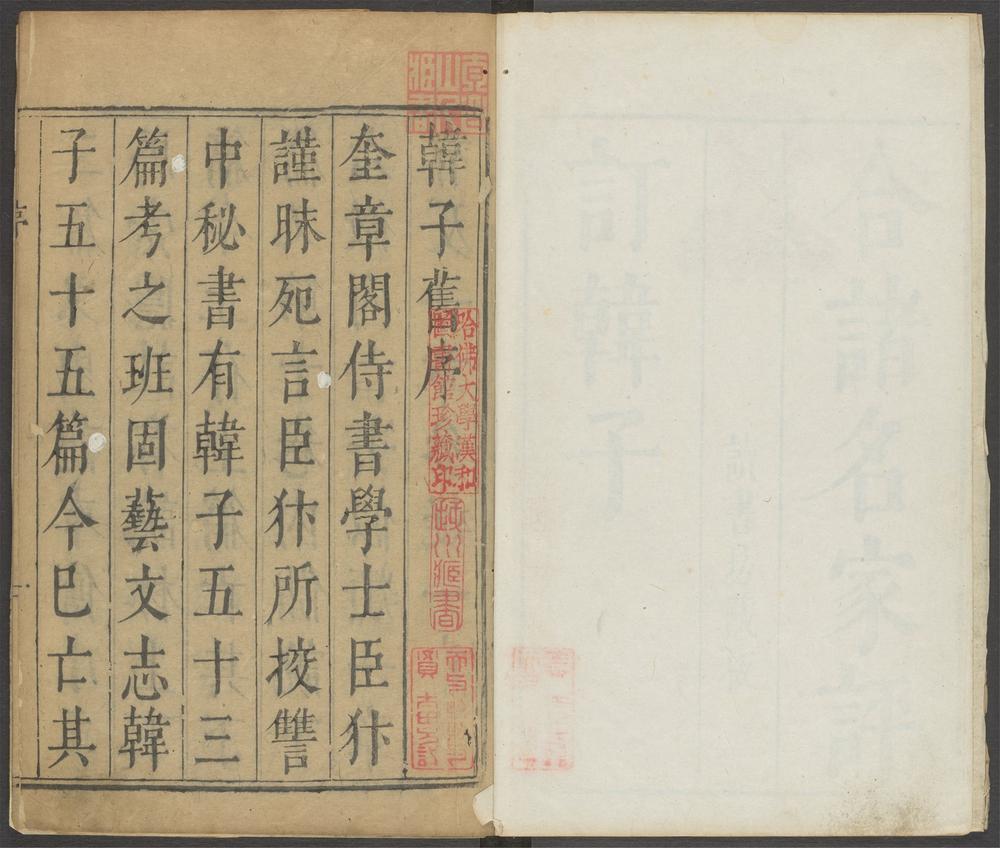 韓子舊序
奎章閣侍書學士臣犿
謹昧死言臣犿所挍讐
中秘書有韓子五十三
篇考之班固藝文志韓
子五十五篇今巳亡其
序
一
哈佛大學漢和
圖書館珍藏印
合諸名家評
訂韓子